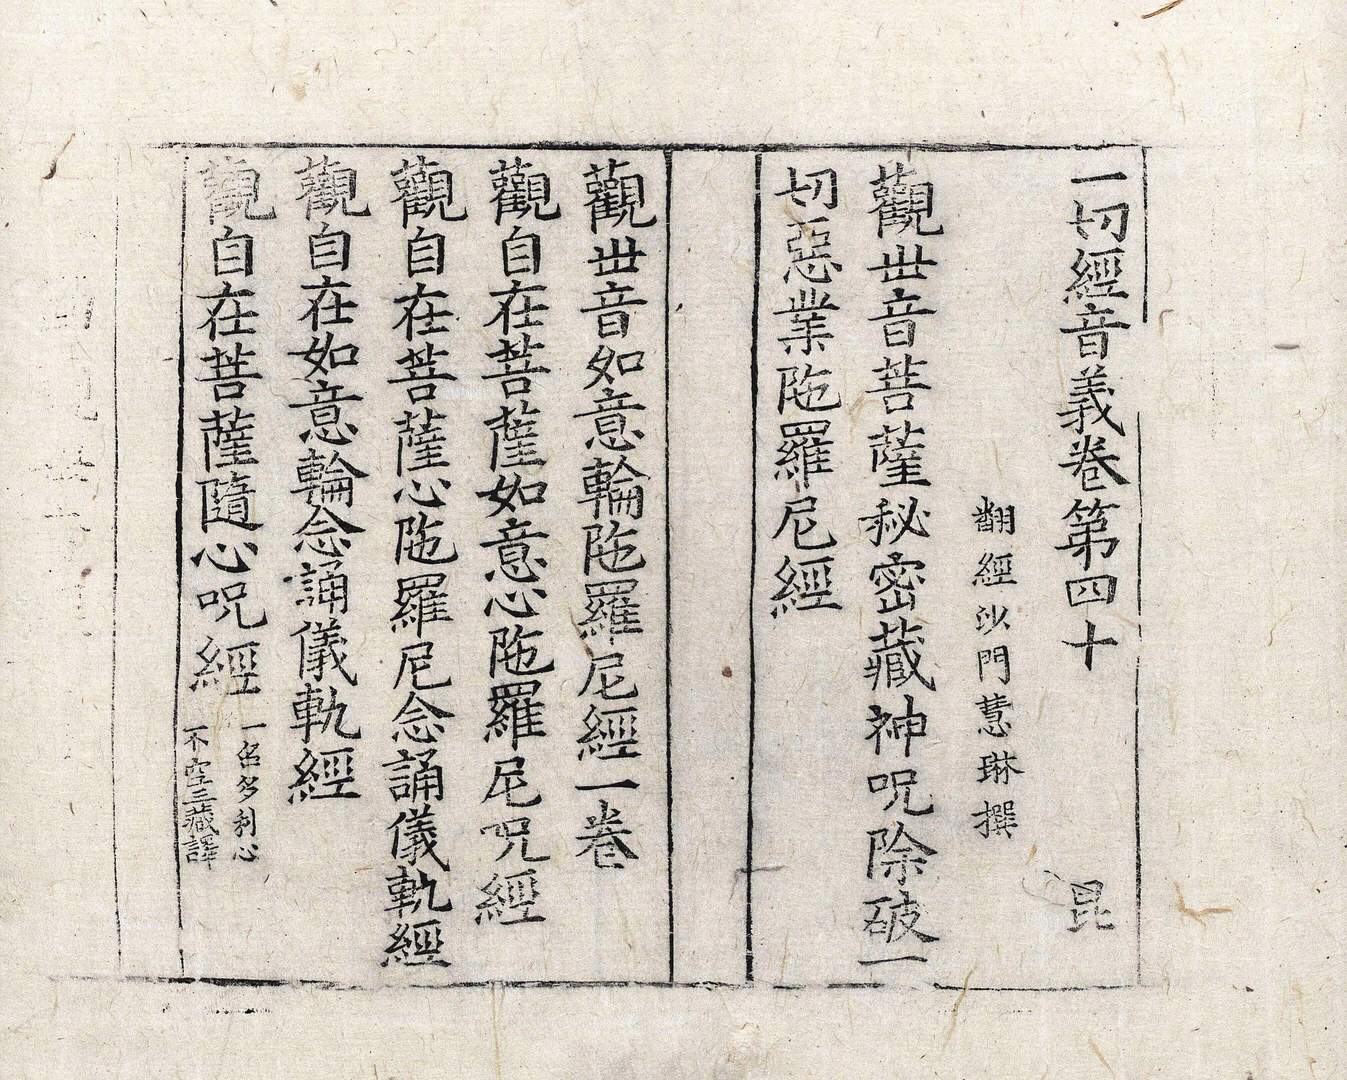 一切經音義卷第四十 昆
翻經沙門慧琳撰
觀世音菩薩秘密藏神呪除破一
切惡業陁羅尼經
觀世音如意輪陁羅尼經一卷
觀自在菩薩如意心陁羅尼呪經
觀自在菩薩心陁羅尼念誦儀軌經
觀自在如意輪念誦儀軌經
觀自在菩薩隨心呪經
一名多利心
不空三藏譯